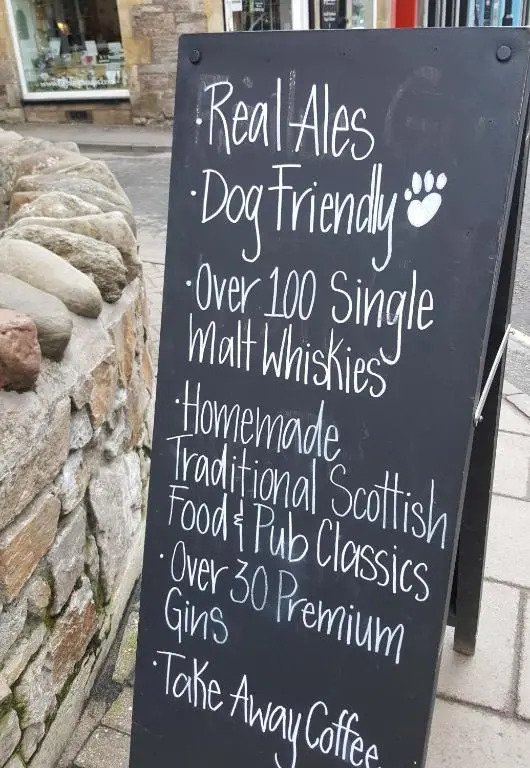 · Real Ales
· Dog Friendly
· Over 100 Single
Malt Whiskies
· Homemade
Traditional Scottish
Food & Pub Classics
· Over 30 Premium
Gins
· Take Away Coffee